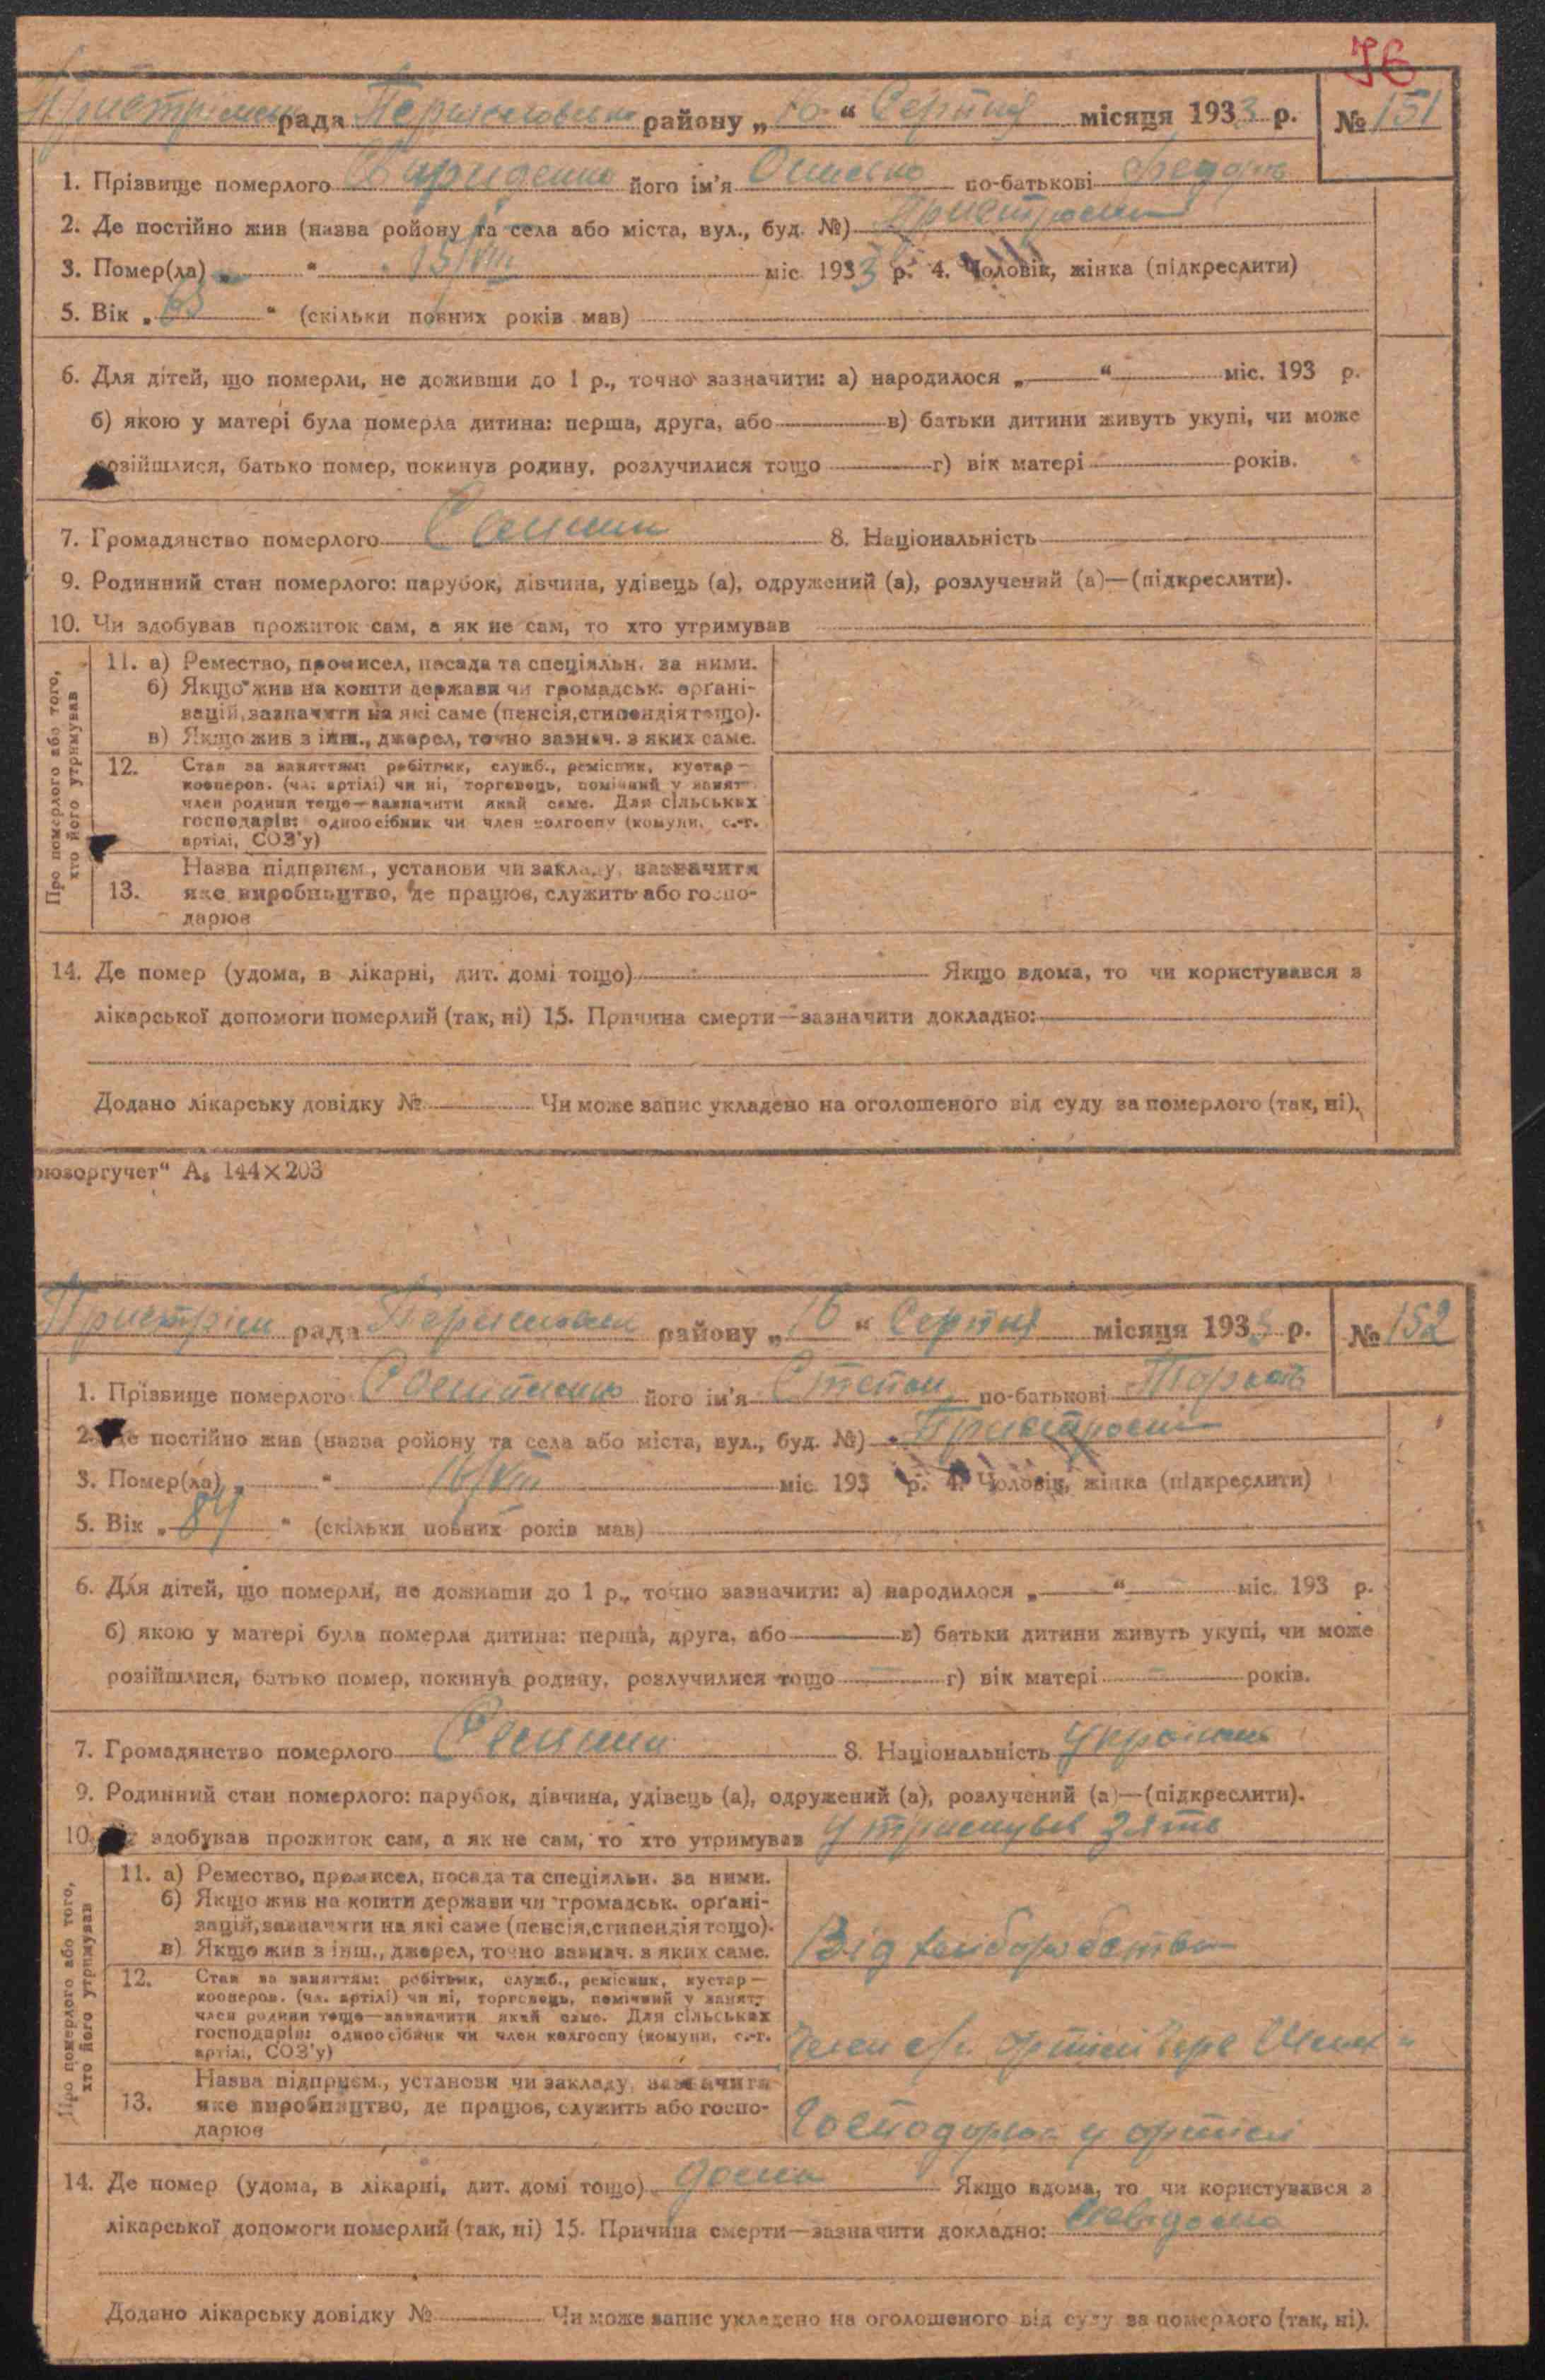 76
рада районy „ 16 “ Серпня місяця 1933 р. № 151
1. Прізвище померлого його ім'я по-батькові
2. Де постійно жив (назва ройону та села або міста, вул., буд. №)
3. Помер(ла) „ “ 15/VIII міс 1933 р. 4. Чоловік, жінка (підкреслити)
5. Вік „ “ (скільки повних років мав)
6. Для дітей, що померли, не доживши до 1 р., точно зазначити: а) народилося „ “ міс. 193 р.
б) якою у матері була померла дитина: перша, друга, або в) батьки дитини живуть укупі, чи може
розійшлися, батько помер, покинув родину, розлучилися тощо г) вік матері років.
7. Громадянство померлого 8. Національність
9. Родинний стан померлого: парубок, дівчина, удівець (а), одружений (а), розлучений (а)—(підкреслити).
10. Чи здобував прожиток сам, а як не сам, то хто утримував
Про померлого або того, хто його утримував
11. а) Ремество, промисел, посада та спеціяльн. за ними.
б) Якщо жив на кошти держави чи громадськ. орґані-
зацій, зазначити на які саме (пенсія, стипендія тощо).
в) Якщо жив з інш., джерел, точно зазнач. з яких саме.
12. Стан за заняттям: робітник, служб., ремісник, кустар—
кооперов. (чл. артілі) чи ні, торговець, помічний у занят.
член родини тощо—зазначити який саме. Для сільських
господарів: одноосібник чи член колгоспу (комуни, с.-г.
артілі, СОЗ'у)
Назва підприєм., установи чи закладу, зазначити
13. яке виробництво, де працює, служить або госпо-
дарює
14. Де помер (удома, в лікарні, дит. домі тощо) Якщо вдома, то чи користувався з
лікарської допомоги померлий (так, ні) 15. Причина смерти—зазначити докладно:
Додано лікарську довідку № Чи може запис укладено на оголошеного від суду за померлого (так, ні).
оюзоргучет“ А₅ 144×203
рада району „ 16 “ Серпня місяця 1933 р. № 152
1. Прізвище померлого його ім'я Степан по-батькові
2. Де постійно жив (назва ройону та села або міста, вул., буд. №)
3. Помер(ла) „ “ 16/VIII міс 193 р. 4. Чоловік, жінка (підкреслити)
5. Вік „ 84 “ (скільки повних років мав)
6. Для дітей, що померли, не доживши до 1 р., точно зазначити: а) народилося „ “ міс. 193 р.
б) якою у матері була померла дитина: перша, друга, або в) батьки дитини живуть укупі, чи може
розійшлися, батько помер, покинув родину, розлучилися тощо г) вік матері років.
7. Громадянство померлого 8. Національність
9. Родинний стан померлого: парубок, дівчина, удівець (а), одружений (а), розлучений (а)—(підкреслити).
10. здобував прожиток сам, а як не сам, то хто утримував Утримував Зять
Про померлого або того, хто його утримував
11. а) Ремество, промисел, посада та спеціяльн. за ними.
б) Якщо жив на кошти держави чи громадськ. орґані-
зацій, зазначити на які саме (пенсія, стипендія тощо).
в) Якщо жив з інш., джерел, точно зазнач. з яких саме. Від хліборобства
12. Стан за заняттям: робітник, служб., ремісник, кустар—
кооперов. (чл. артілі) чи ні, торговець, помічний у занят.
член родини тощо—зазначити який саме. Для сільських
господарів: одноосібник чи член колгоспу (комуни, с.-г.
артілі, СОЗ'у) Член артілі
Назва підприєм., установи чи закладу, зазначити
13. яке виробництво, де працює, служить або госпо-
дарює у артілі
14. Де помер (удома, в лікарні, дит. домі тощо) дома Якщо вдома, то чи користувався з
лікарської допомоги померлий (так, ні) 15. Причина смерти—зазначити докладно: невідомо
Додано лікарську довідку № Чи може запис укладено на оголошеного від суду за померлого (так, ні).